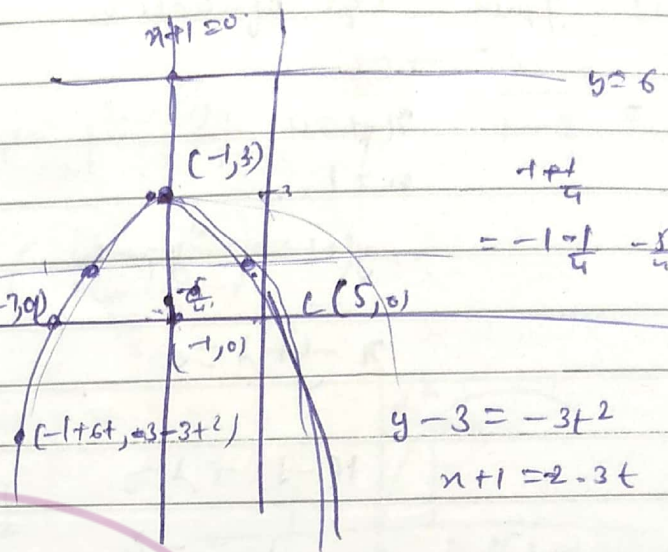 x+1=0
y=6
(-1,3)
3
-1+-1/4
= -1-1/4 -5/4
-7,0)
-5/4
(5,0)
(-1,0)
(-1+6t, 3-3t²)
y-3 = -3t²
x+1 = 2·3t